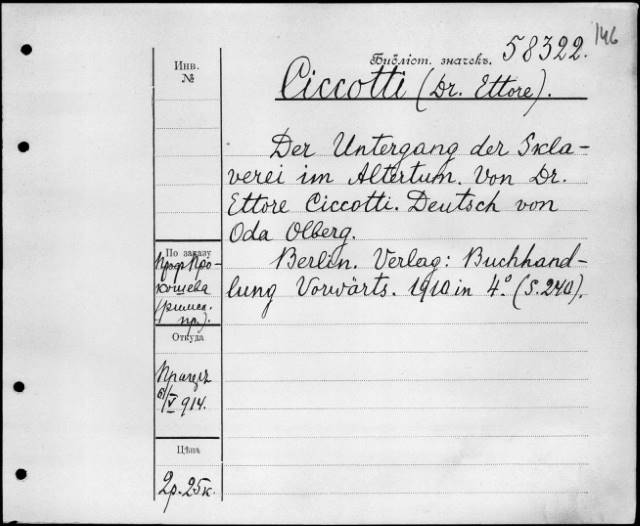 146
Библіот. значекъ. 58322.
Инв.
№
Ciccotti (Dr. Ettore).
Der Untergang der Skla-
verei im Altertum. Von Dr.
Ettore Ciccotti. Deutsch von
Oda Olberg.
Berlin. Verlag: Buchhand-
lung Vorwärts. 1910 in 4º (S. 240).
По заказу
Проф. Про-
кошева
(римск.
пр.).
Откуда
6/V 914.
Цѣна
2р. 25к.